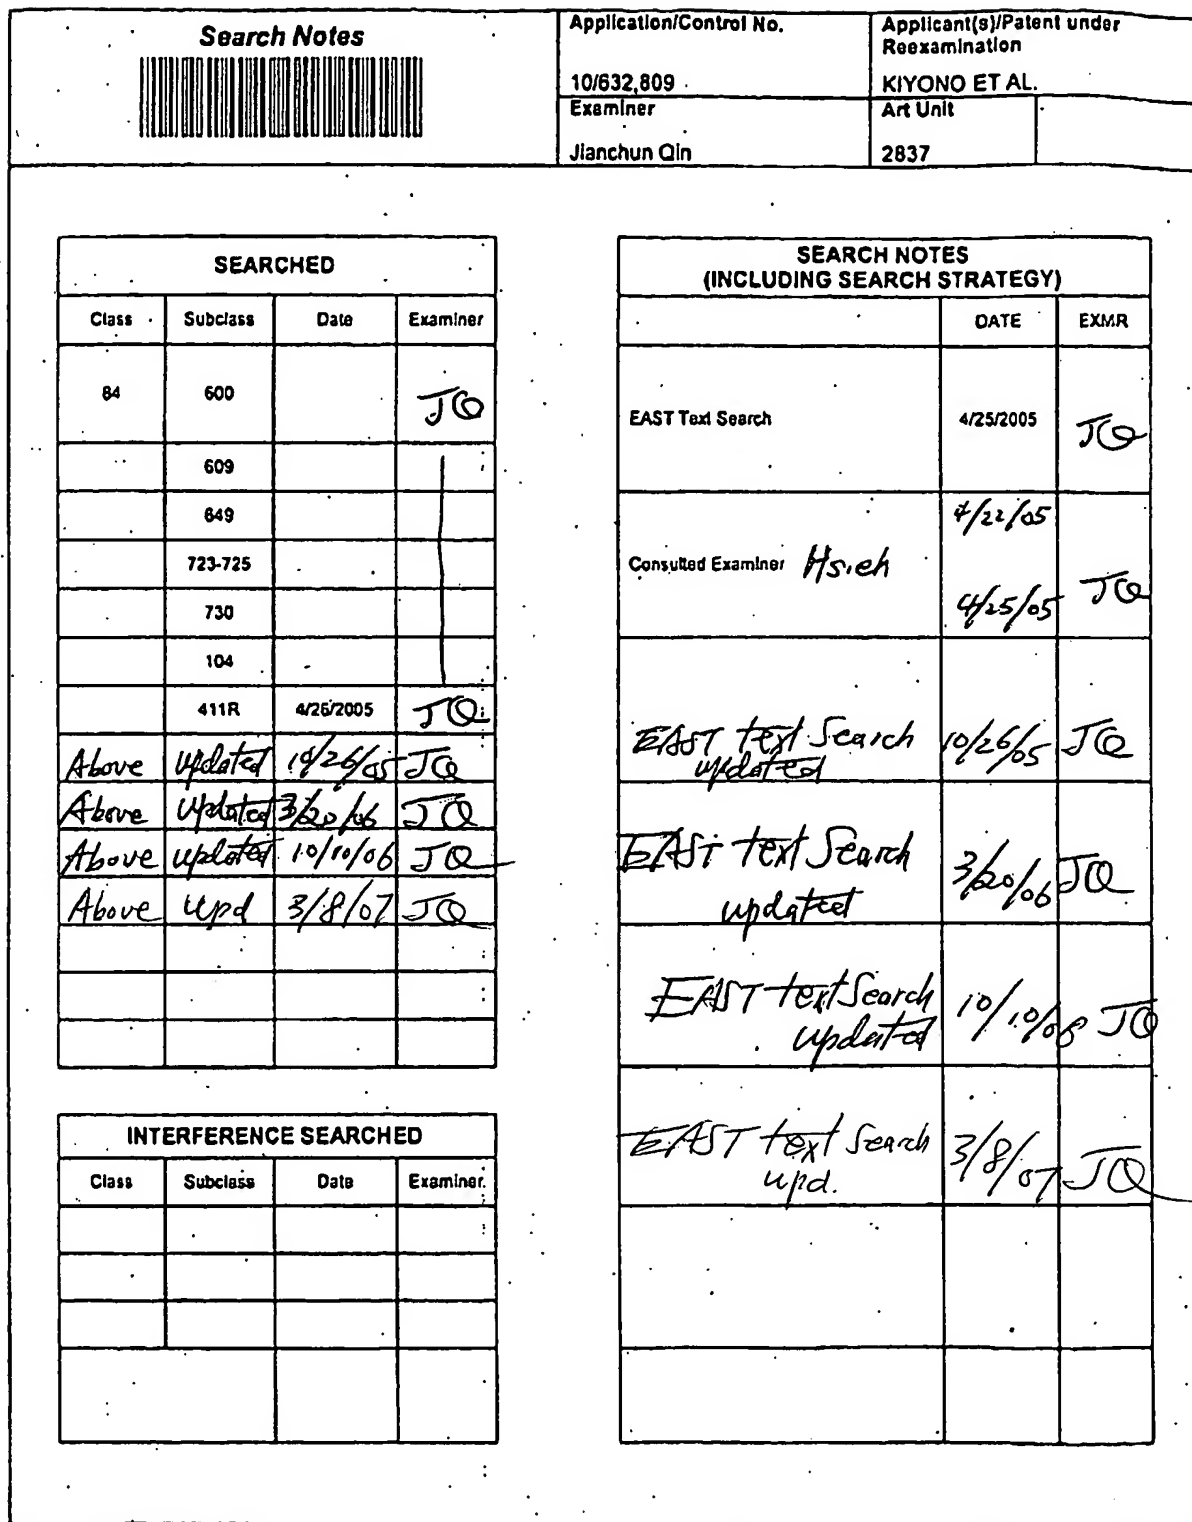 Search Notes
Application/Control No.
10/632,809
Applicant(s)/Patent under
Reexamination
KIYONO ET AL.
Examiner
Jianchun Qin
Art Unit
2837
SEARCHED
Class Subclass Date Examiner
84 600 JQ
609
649
723-725
730
104
411R 4/26/2005 JQ
Above updated 10/26/05 JQ
Above updated 3/20/06 JQ
Above updated 10/10/06 JQ
Above upd 3/8/07 JQ
INTERFERENCE SEARCHED
Class Subclass Date Examiner
SEARCH NOTES
(INCLUDING SEARCH STRATEGY)
DATE EXMR
EAST Text Search 4/25/2005 JQ
4/22/05
Consulted Examiner Hsieh
4/25/05 JQ
EAST text Search 10/26/05 JQ
updated
EAST text Search 3/20/06 JQ
updated
EAST text Search 10/10/06 JQ
updated
EAST text Search 3/8/07 JQ
upd.